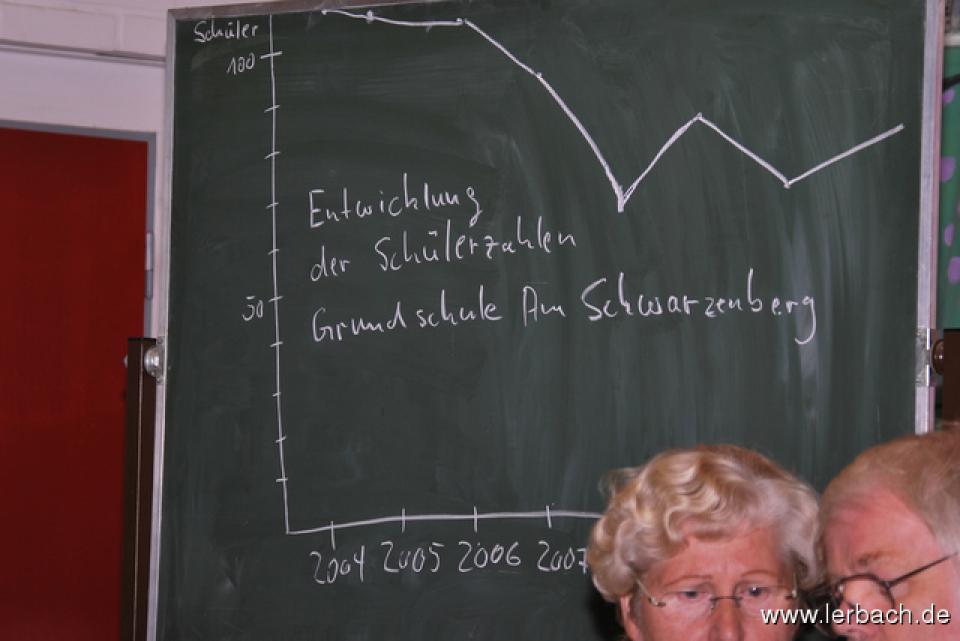 Schüler
100
Entwicklung
der Schülerzahlen
50
Grundschule Am Schwarzenberg
2004 2005 2006 2007
www.lerbach.de